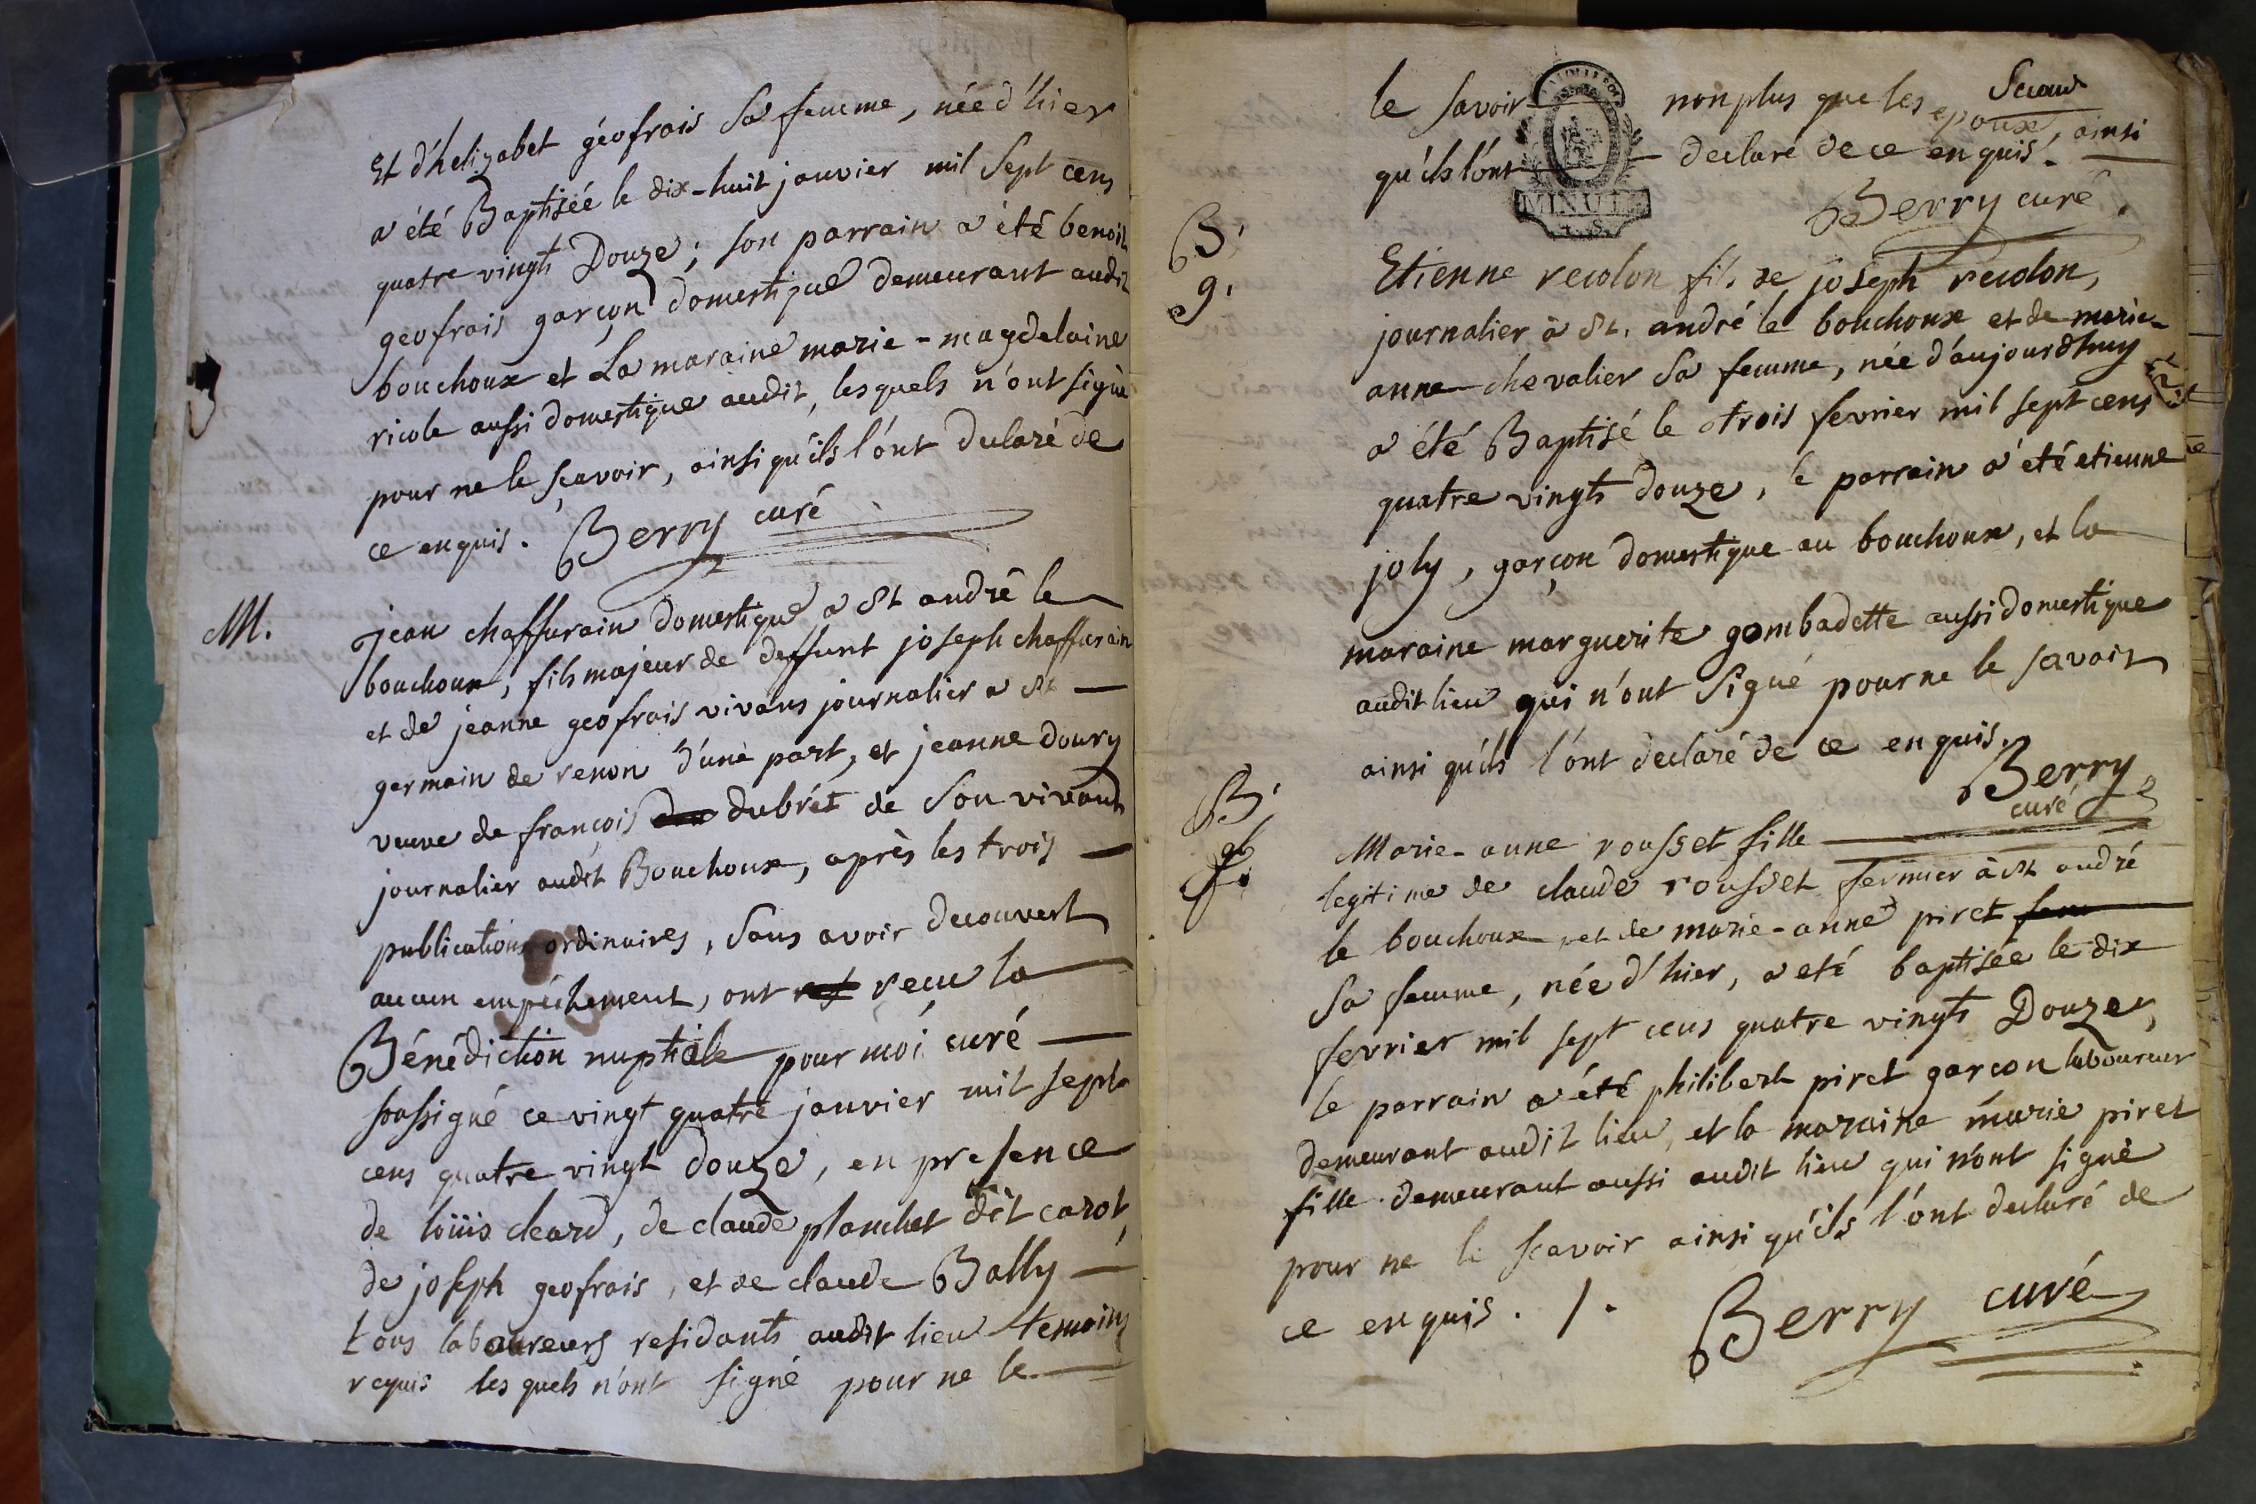 Et d'helizabet géofrais sa femme, née d'hier
a été Baptisée le dix-huit janvier mil sept cens
quatre vingts Douze; son parrain a été benoit
geofrais garçon domestique demeurant audit
bouchoux et La maraine marie-magdelaine
ricole aussi domestique audit, lesquels n'ont signé
pour ne le sçavoir, ainsi qu'ils l'ont declaré de
ce enquis. Berry curé
M.
jean chaffurain domestique a St andré le
bouchoux, fils majeur de deffunt joseph chaffurain
et de jeanne geofrais vivans journalier a St
germain de renon d'une part, et jeanne doury
veuve de françois dubrét de son vivant
journalier audit Bouchoux, après les trois
publications ordinaires, sans avoir decouvert
aucun empéchement, ont reçu la
Bénédiction nuptiale pour moi curé
soussigné ce vingt quatre janvier mil sept
cens quatre vingt douze, en presence
de loüis cleard, de claude planchet dit carot,
de joseph geofrais, et de claude Bally
tous laboureurs residants audit lieu temoins
requis les quels n'ont signé pour ne le
le savoir non plus que les epoux, ainsi
qu'ils l'ont declaré de ce enquis.
MINUTE
Berry curé.
B.
g.
Etienne recolon fils de joseph recolon,
journalier à St. andré le bouchoux et de marie-
anne chevalier sa femme, née d'aujourdhuy
a été Baptisé le trois fevrier mil sept cens
quatre vingts douze, le parrain a été etienne
joly, garçon domestique au bouchoux, et la
maraine marguerite gombadette aussi domestique
audit lieu qui n'ont signé pour ne le savoir
ainsi qu'ils l'ont declaré de ce enquis.
Berry
curé
B.
f.
Marie-anne rousset fille
legitime de claude rousset fermier à St andré
le bouchoux et de marie-anne piret
sa femme, née d'hier, a eté baptisée le dix
fevrier mil sept cens quatre vingts Douze,
le parrain a été philibert piret garçon laboureur
demeurant audit lieu, et la maraine marie piret
fille demeurant aussi audit lieu qui n'ont signé
pour ne le scavoir ainsi qu'ils l'ont declaré de
ce enquis. /.
Berry curé